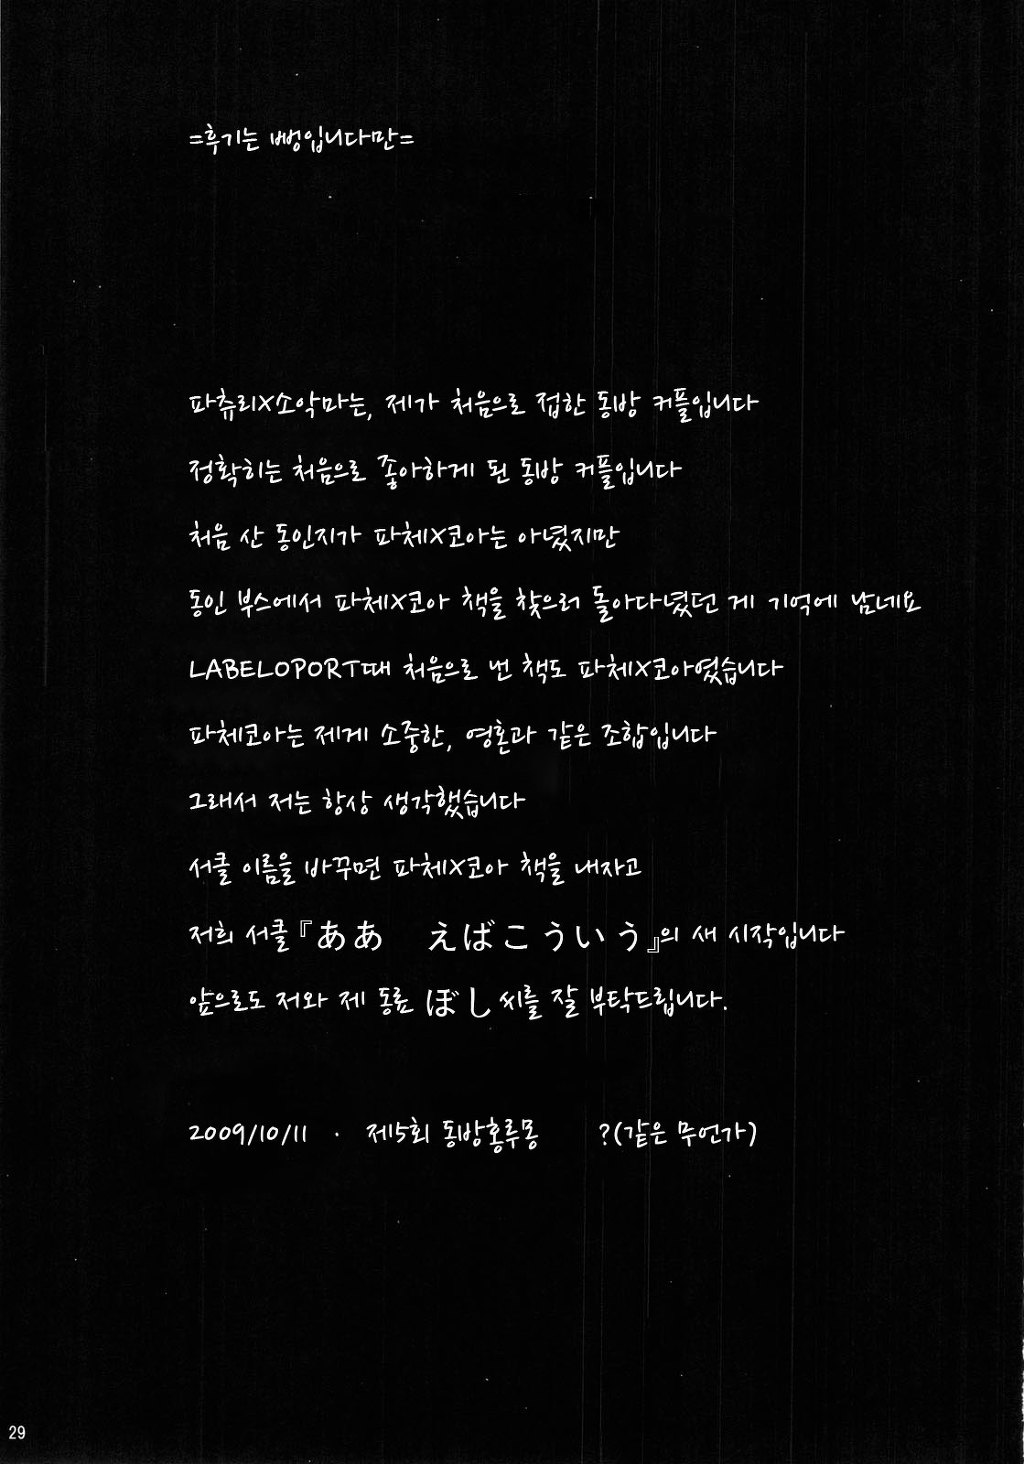 =후기는 뻥입니다만=
파츄리X소악마는, 제가 처음으로 접한 동방 커플입니다
정확히는 처음으로 좋아하게 된 동방 커플입니다
처음 산 동인지가 파체X코아는 아녔지만
동인 부스에서 파체X코아 책을 찾으러 돌아다녔던 게 기억에 남네요
LABELOPORT때 처음으로 낸 책도 파체X코아였습니다
파체코아는 제게 소중한, 영혼과 같은 조합입니다
그래서 저는 항상 생각했습니다
서클 이름을 바꾸면 파체X코아 책을 내자고
저희 서클『ああ　えばこういう』의 새 시작입니다
앞으로도 저와 제 동료 ぼし 씨를 잘 부탁드립니다.
2009/10/11 · 제5회 동방홍루몽 ?(같은 무언가)
29